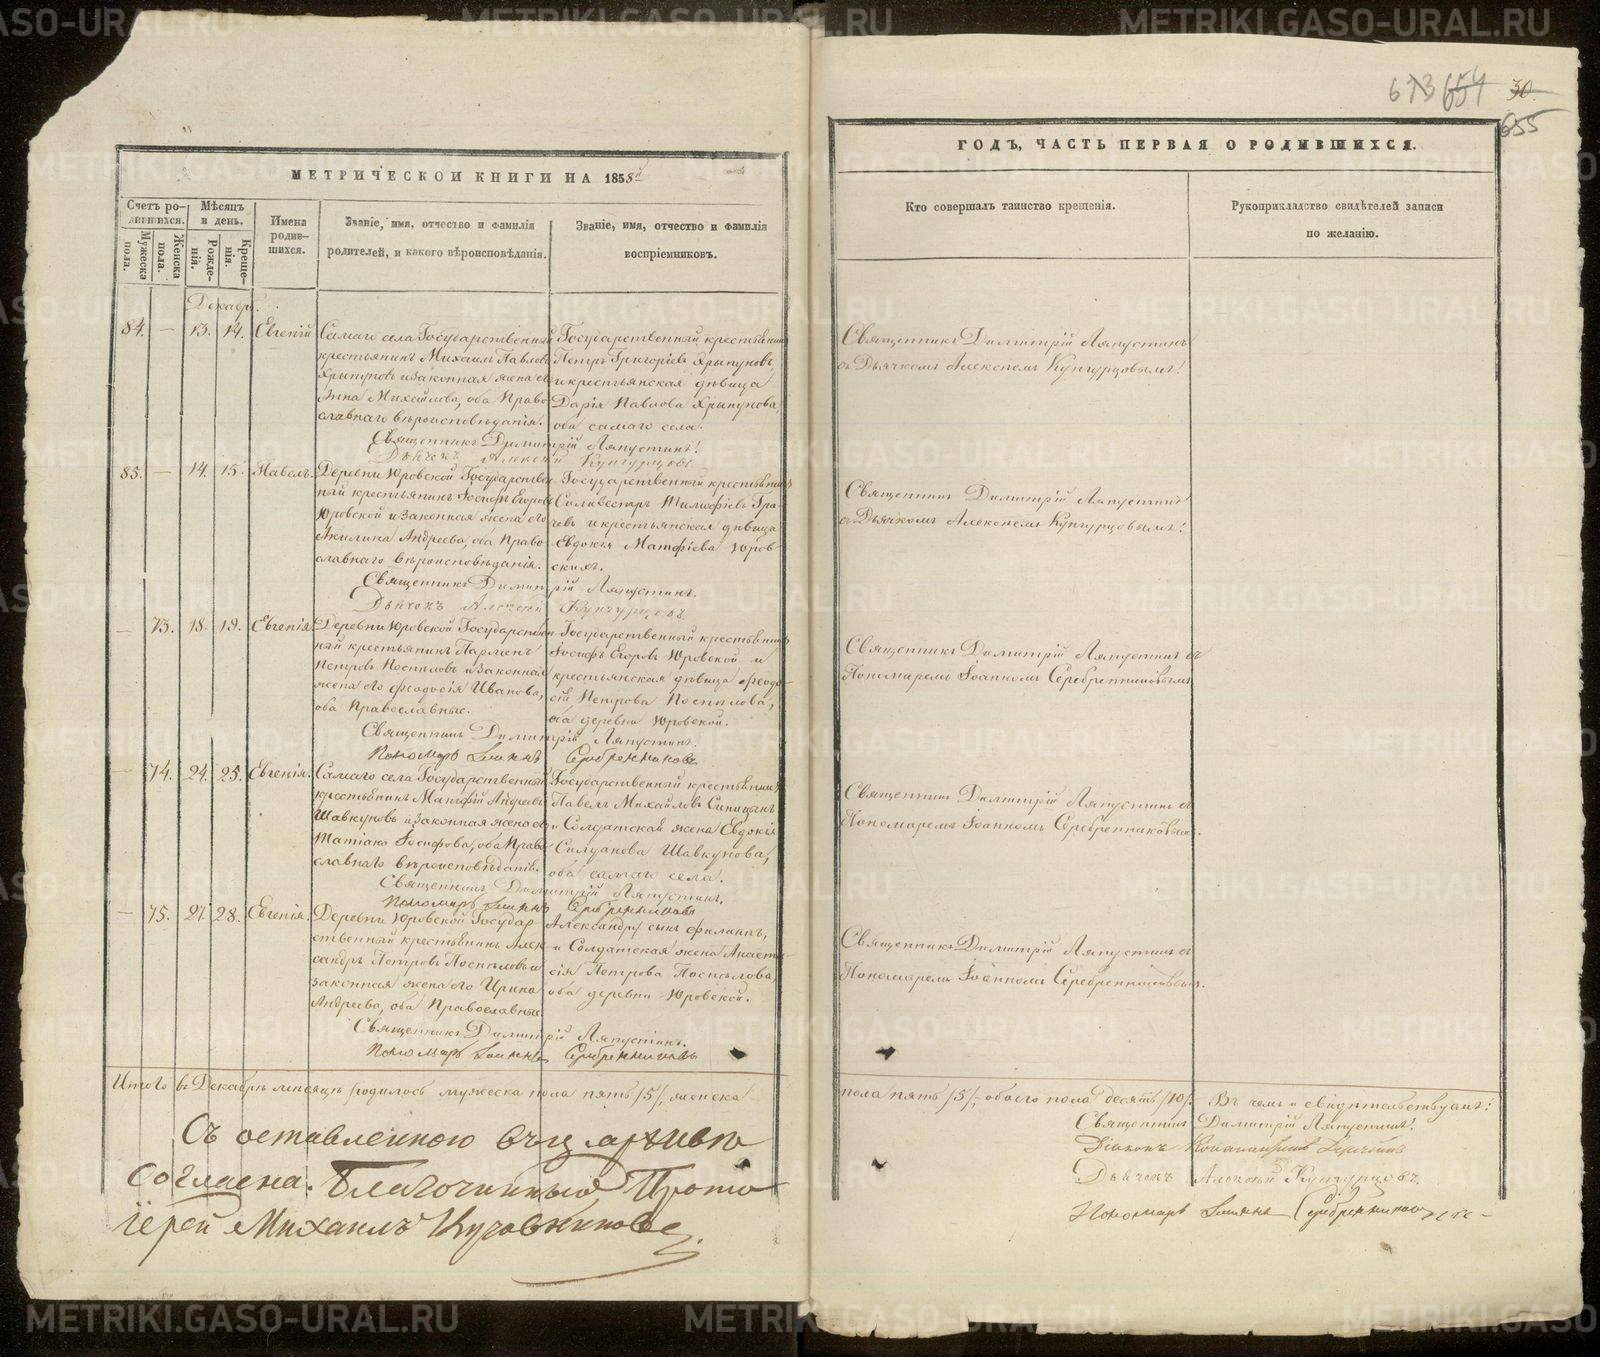 МЕТРИЧЕСКОЙ КНИГИ НА 1858й
Счетъ ро-
дившихся.
Мужеска пола.
Женска пола.
Мѣсяцъ
и день.
Рожде-
ній.
Креще-
нія.
Имена
родив-
шихся.
Званіе, имя, отчество и фамилія
родителей, и какого вѣроисповѣданія.
Званіе, имя, отчество и фамилія
воспріемниковъ.
Декабр.
84. — 13. 14. Евгеній
Самаго села Государственный
крестьянинъ Михаилъ Павловъ
Хрыпуновъ и законная жена его
Анна Михайлова, оба Право-
славнаго вѣроисповѣданія.
Государственный крестьянинъ
Петръ Григорьевъ Хрыпуновъ
и крестьянская дѣвица
Дарія Павлова Хрыпунова,
оба самаго села.
Священникъ Димитрій Ляпустинъ!
Дьячекъ Алексѣй Кунгурцовъ
85. — 14. 15. Павелъ.
Деревни Юровской Государствен-
ный крестьянинъ Іосифъ Егоровъ
Юровской и законная жена его
Акилина Андреева, оба Право-
славнаго вѣроисповѣданія.
Государственный крестьянинъ
Силивестръ
и крестьянская дѣвица
Евдокія Матфіева Юров-
скихъ.
Священникъ Димитрій Ляпустинъ.
Дьячекъ Алексѣй Кунгурцовъ.
— 73. 18. 19. Евгенія.
Деревни Юровской Государствен-
ный крестьянинъ Парменъ
Петровъ Поспѣловъ и законная
жена его Феодосія Иванова,
оба Православные.
Государственный крестьянинъ
Іосифъ Егоровъ Юровской и
крестьянская дѣвица Феодо-
сія Петрова Поспѣлова,
оба деревни Юровской.
Священникъ Димитрій Ляпустинъ.
Пономарь Іоаннъ Серебренниковъ
— 74. 24. 25. Евгенія.
Самаго села Государственный
крестьянинъ Матфій Андреевъ
Шавкуновъ и законная жена его
Татіана Іосифова, оба Право-
славнаго вѣроисповѣданія.
Государственный крестьянинъ
Павелъ Михайловъ Синицынъ
и Солдатская жена Евдокія
Силуанова Шавкунова,
оба самаго села.
Священникъ Димитрій Ляпустинъ.
Пономарь Іоаннъ Серебренниковъ
— 75. 27. 28. Евгенія.
Деревни Юровской Государ-
ственный крестьянинъ Алек-
сандръ Петровъ Поспѣловъ и
законная жена его Ирина
Андреева, оба Православные
Александръ сынъ Филиппъ,
и Солдатская жена Анаста-
сія Петрова Поспѣлова,
оба деревни Юровской.
Священникъ Димитрій Ляпустинъ.
Пономарь Іоаннъ Серебренниковъ
Итого въ Декабрѣ мѣсяцѣ родилось мужеска пола пять /5/, женска
Съ оставленною въ церк. архивѣ
согласна. Благочинный Прото-
іерей Михаилъ
673 654 30.
655
ГОДЪ, ЧАСТЬ ПЕРВАЯ О РОДИВШИХСЯ.
Кто совершалъ таинство крещенія.
Рукоприкладство свидѣтелей записи
по желанію.
Священникъ Димитрій Ляпустинъ
съ Дьячкомъ Алексѣемъ Кунгурцовымъ!
Священникъ Димитрій Ляпустинъ
съ Дьячкомъ Алексѣемъ Кунгурцовымъ!
Священникъ Димитрій Ляпустинъ съ
Пономаремъ Іоанномъ Серебренниковымъ.
Священникъ Димитрій Ляпустинъ съ
Пономаремъ Іоанномъ Серебренниковымъ.
Священникъ Димитрій Ляпустинъ съ
Пономаремъ Іоанномъ Серебренниковымъ.
пола пять /5/, обоего пола десять /10/. Въ чемъ и свидѣтельствуемъ:
Священникъ Димитрій Ляпустинъ!
Діаконъ
Дьячекъ Алексѣй Кунгурцовъ.
Пономарь Іоаннъ Серебренниковъ
METRIKI.GASO-URAL.RU